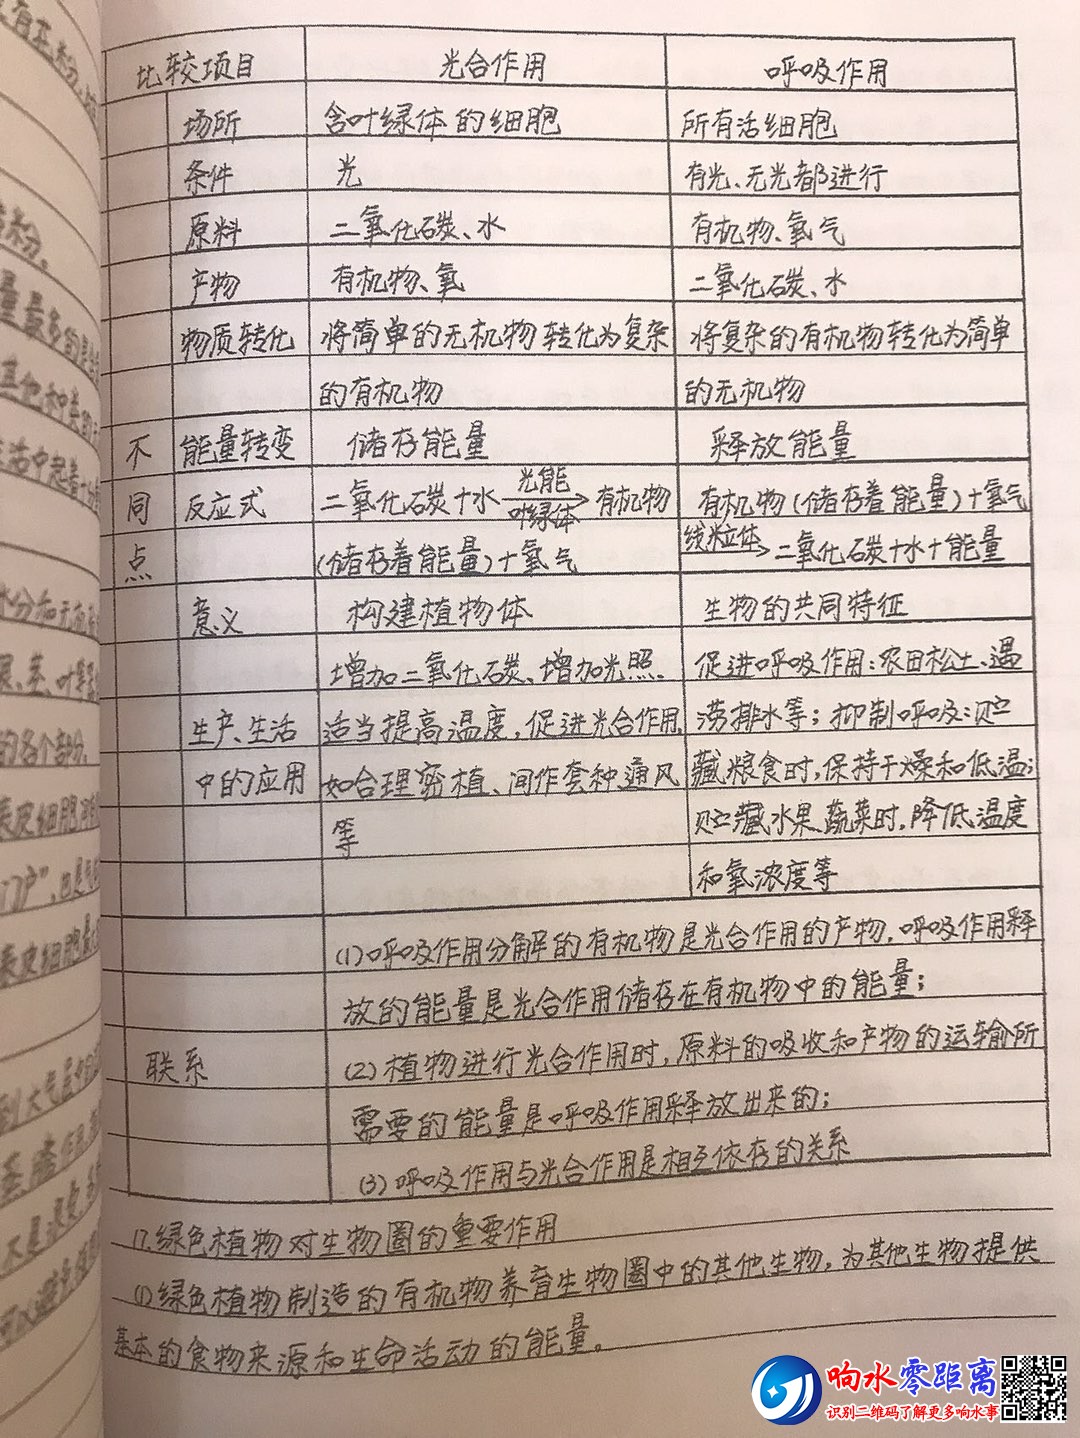 比较项目 光合作用 呼吸作用
场所 含叶绿体的细胞 所有活细胞
条件 光 有光、无光都进行
原料 二氧化碳、水 有机物、氧气
产物 有机物、氧 二氧化碳、水
物质转化 将简单的无机物转化为复杂 将复杂的有机物转化为简单
的有机物 的无机物
不 能量转变 储存能量 释放能量
同 反应式 二氧化碳+水 光能 叶绿体 有机物 有机物(储存着能量)+氧气
点 (储存着能量)+氧气 线粒体 二氧化碳+水+能量
意义 构建植物体 生物的共同特征
增加二氧化碳、增加光照 促进呼吸作用:农田松土、遇
生产、生活 适当提高温度,促进光合作用, 涝排水等;抑制呼吸:贮
中的应用 如合理密植、间作套种、通风 藏粮食时,保持干燥和低温;
等 贮藏水果、蔬菜时,降低温度
和氧浓度等
(1)呼吸作用分解的有机物是光合作用的产物,呼吸作用释
放的能量是光合作用储存在有机物中的能量;
联系 (2)植物进行光合作用时,原料的吸收和产物的运输所
需要的能量是呼吸作用释放出来的;
(3)呼吸作用与光合作用是相互依存的关系
17.绿色植物对生物圈的重要作用
(1)绿色植物制造的有机物养育生物圈中的其他生物,为其他生物提供
基本的食物来源和生命活动的能量。
响水零距离
识别二维码了解更多响水事